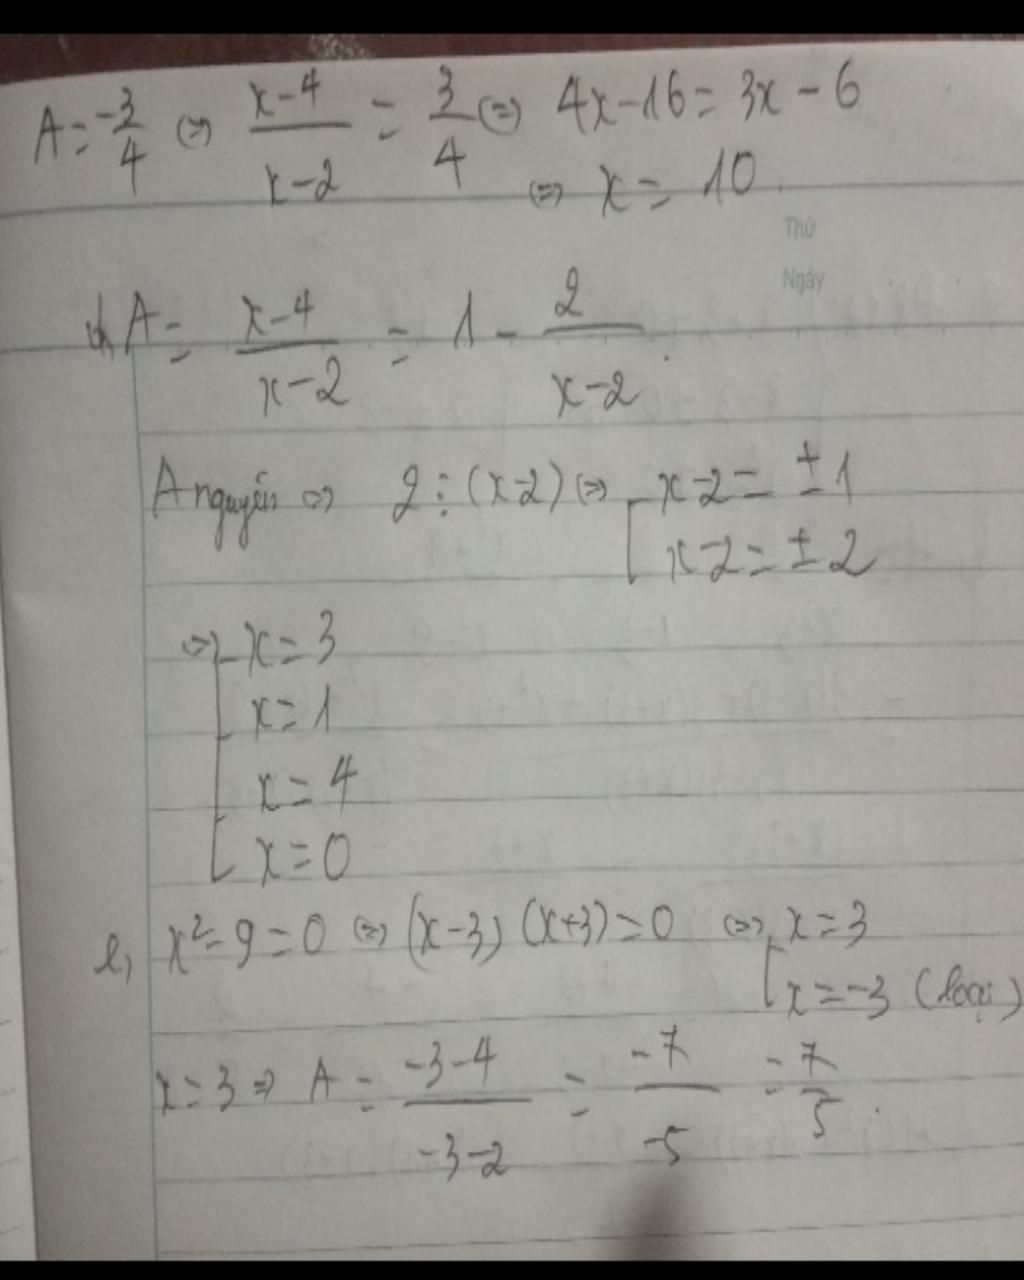 A = -3/4 ⇔ x-4/x-2 = 3/4 ⇔ 4x-16 = 3x-6
⇔ x = 10
Thứ
Ngày
d, A = x-4/x-2 = 1 - 2/x-2.
A nguyên ⇔ 2 ⋮ (x-2) ⇔ [ x-2 = ±1
x-2 = ±2
⇔ [ x = 3
x = 1
x = 4
x = 0
e, x²-9=0 ⇔ (x-3)(x+3)=0 ⇔ [ x=3
x=-3 (loại)
x=3 ⇒ A = -3-4/-3-2 = -7/-5 = 7/5.